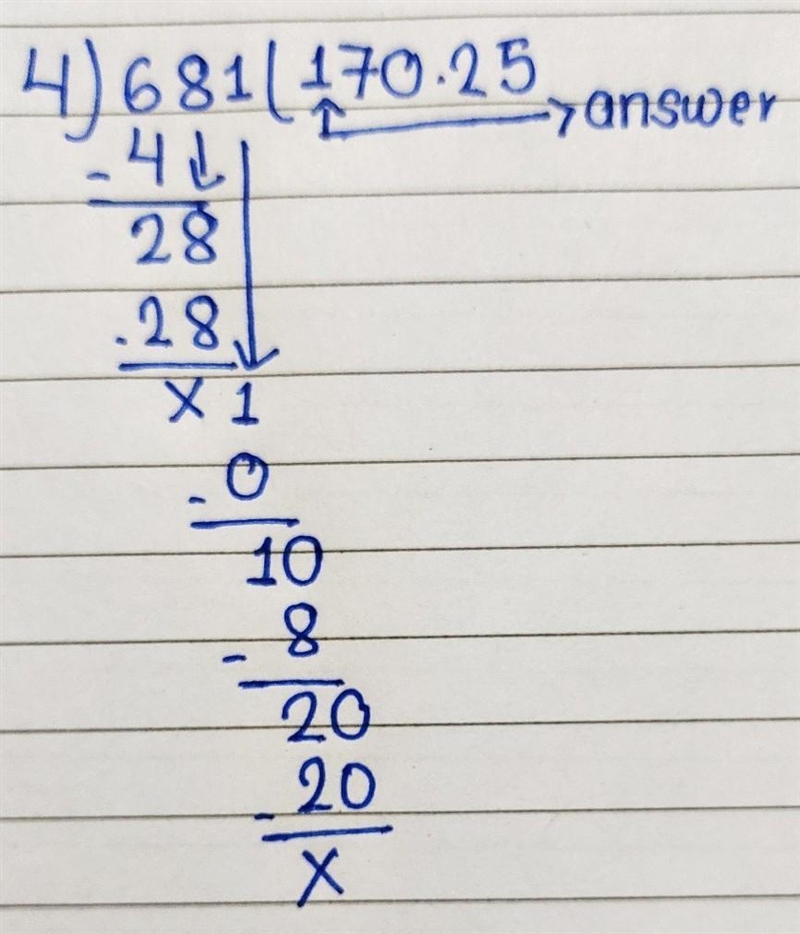 4)681(170.25
→answer
-4↓
28
.28
x1
-0
10
-8
20
-20
x